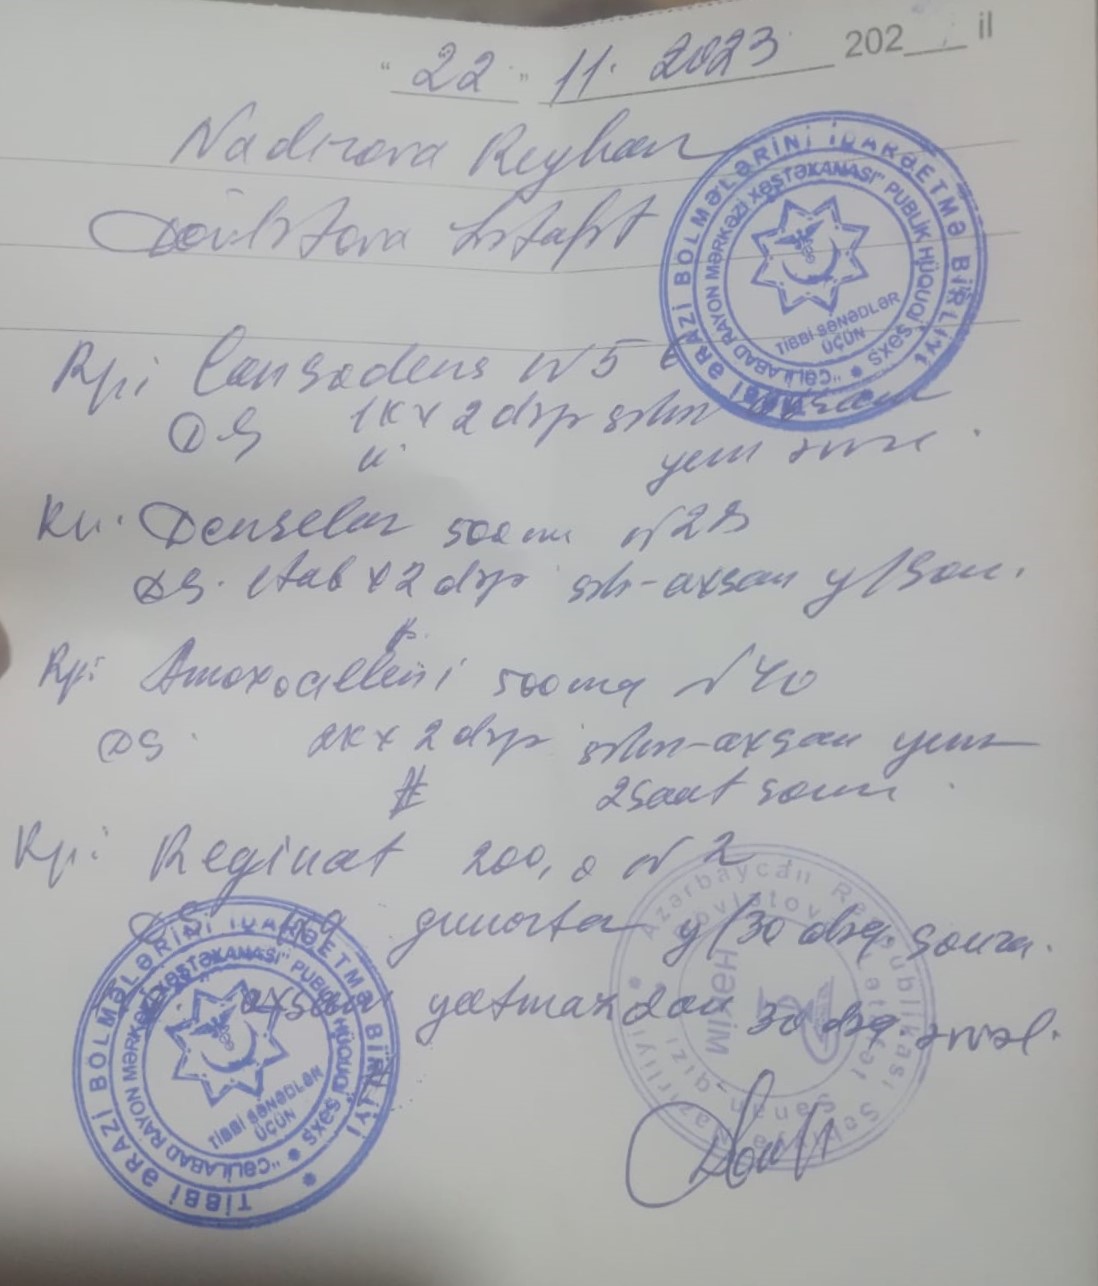 "22" 11. 2023 202___ il
Nadirova Reyhan
Dövlətova
Rp: Lansodens N5
DS 1K x 2 dəfə səhər axşam
yem əvvəl.
Rp. 500 mg N28
DS. 1tab x 2 dəfə səh-axşam y/son.
Rp: Amoxocillini 500mg N40
DS. 2K x 2 dəfə səhər-axşam yem
2 saat sonra.
Rp: Reginat 200,0 N2
DS günorta y/30 dəq. sonra.
axşam yatmazdan 30 dəq. əvvəl.
TİBBİ ƏRAZİ BÖLMƏLƏRİNİ İDARƏETMƏ BİRLİYİ
"CƏLİLABAD RAYON MƏRKƏZİ XƏSTƏXANASI" PUBLİK HÜQUQİ ŞƏXS
TİBBİ SƏNƏDLƏR
ÜÇÜN
TİBBİ ƏRAZİ BÖLMƏLƏRİNİ İDARƏETMƏ BİRLİYİ
"CƏLİLABAD RAYON MƏRKƏZİ XƏSTƏXANASI" PUBLİK HÜQUQİ ŞƏXS
TİBBİ SƏNƏDLƏR
ÜÇÜN
Azərbaycan Respublikası
HƏKİM